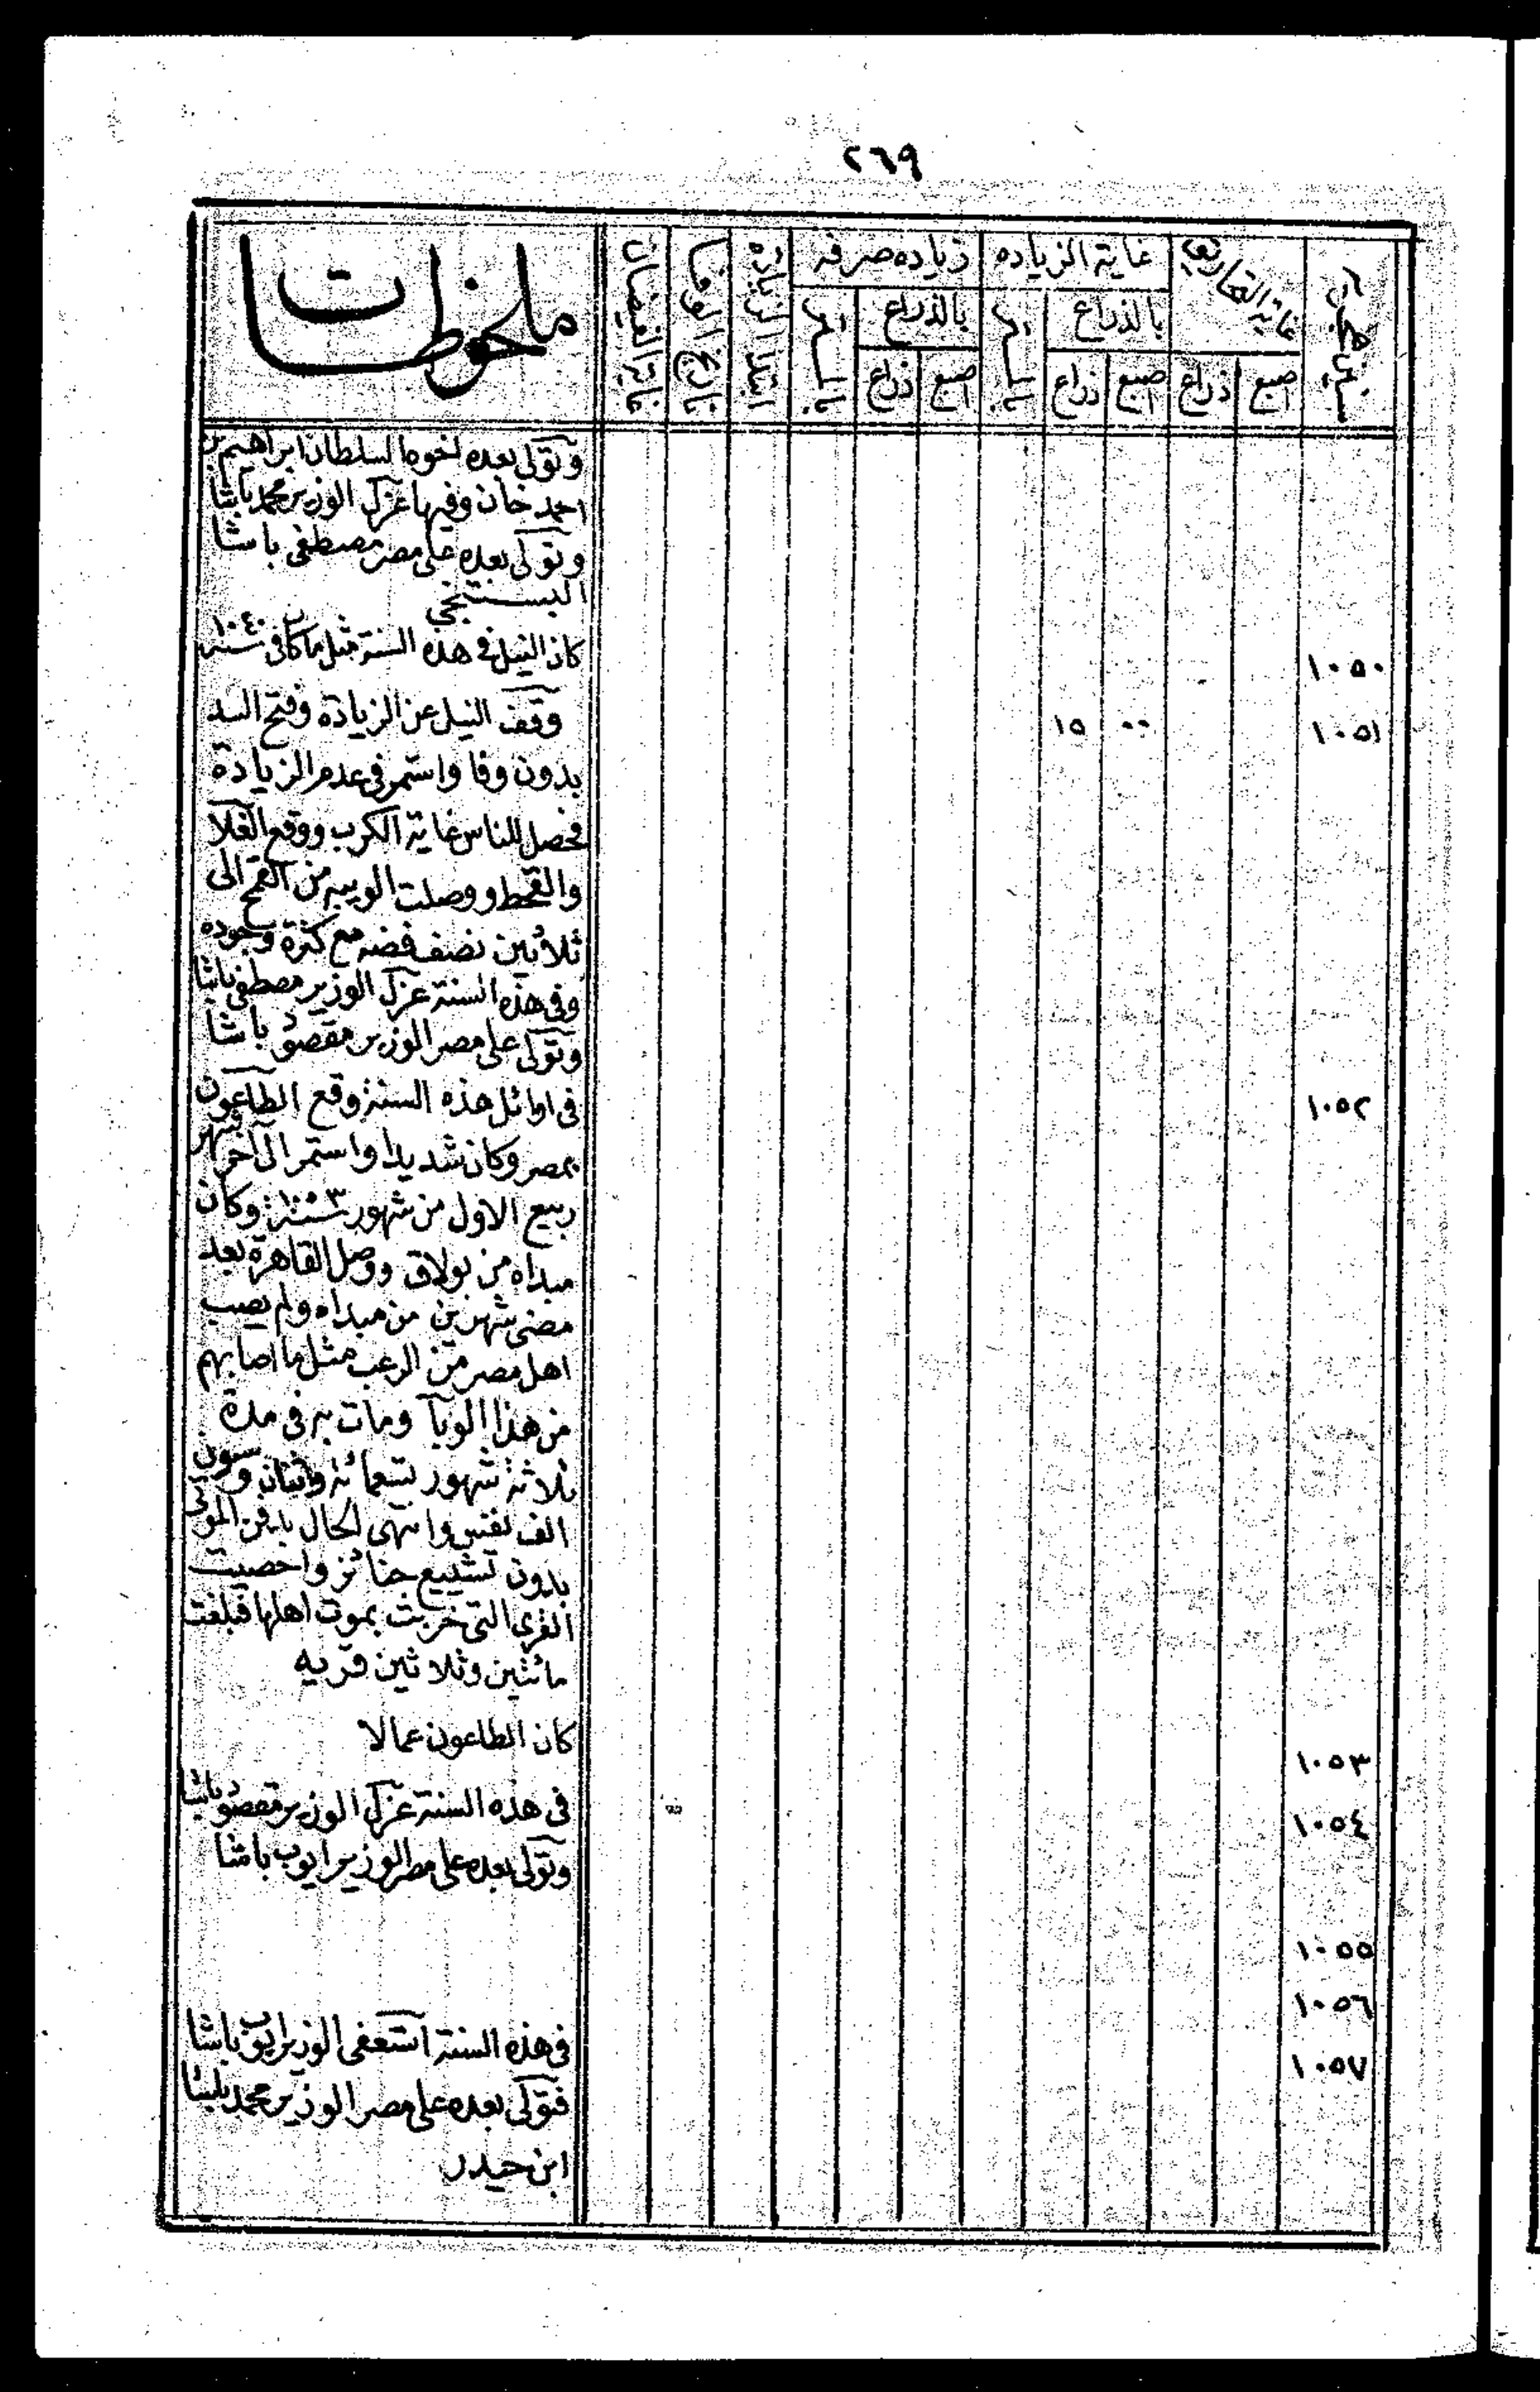 ٢٦٩
سنين هجريه
غاية التحاريق
غاية الزياده
زياده صرفه
ابتدا الزياده
تاريخ الوفا
غاية الفيضان
ملحوظات
بالذراع
بالمتر
بالذراع
بالمتر
اصبع ذراع اصبع ذراع اصبع ذراع
وتولى بعده اخوه السلطان ابراهيم بن
احمد خان وفيها عزل الوزير محمد باشا
وتولى بعده على مصر مصطفى باشا
البستنجي
١٠٥٠ كان النيل فى هذه السنة مثل ما كان فى سنة ١٠٤٠
١٠٥١ ٠٠ ١٥ وقف النيل عن الزيادة وفتح السد
بدون وفا واستمر فى عدم الزيادة
فحصل للناس غاية الكرب ووقع الغلا
والقحط ووصلت الويبه من القمح الى
ثلاثين نصف فضه مع كثرة وجوده
وفى هذه السنة عزل الوزير مصطفى باشا
وتولى على مصر الوزير مقصود باشا
١٠٥٢ فى اوائل هذه السنة وقع الطاعون
بمصر وكان شديدا واستمر الى آخر شهر
ربيع الاول من شهور سنة ١٠٥٣ وكان
مبداه من بولاق ووصل القاهرة بعد
مضى شهرين من مبداه ولم يصب
اهل مصر من الرعب مثل ما اصابهم
من هذا الوبآ ومات به فى مدة
ثلاثة شهور تسعمائة واثنان وستون
الف نفس وانتهى الحال بدفن الموتى
بدون تشييع جنائز واحصيت
القرى التى خربت بموت اهلها فبلغت
مائتين وثلاثين قريه
١٠٥٣ كان الطاعون عمالا
١٠٥٤ فى هذه السنة عزل الوزير مقصود باشا
وتولى بعده على مصر الوزير ايوب باشا
١٠٥٥
١٠٥٦
١٠٥٧ فى هذه السنة استعفى الوزير ايوب باشا
فتولى بعده على مصر الوزير محمد باشا
ابن حيدر